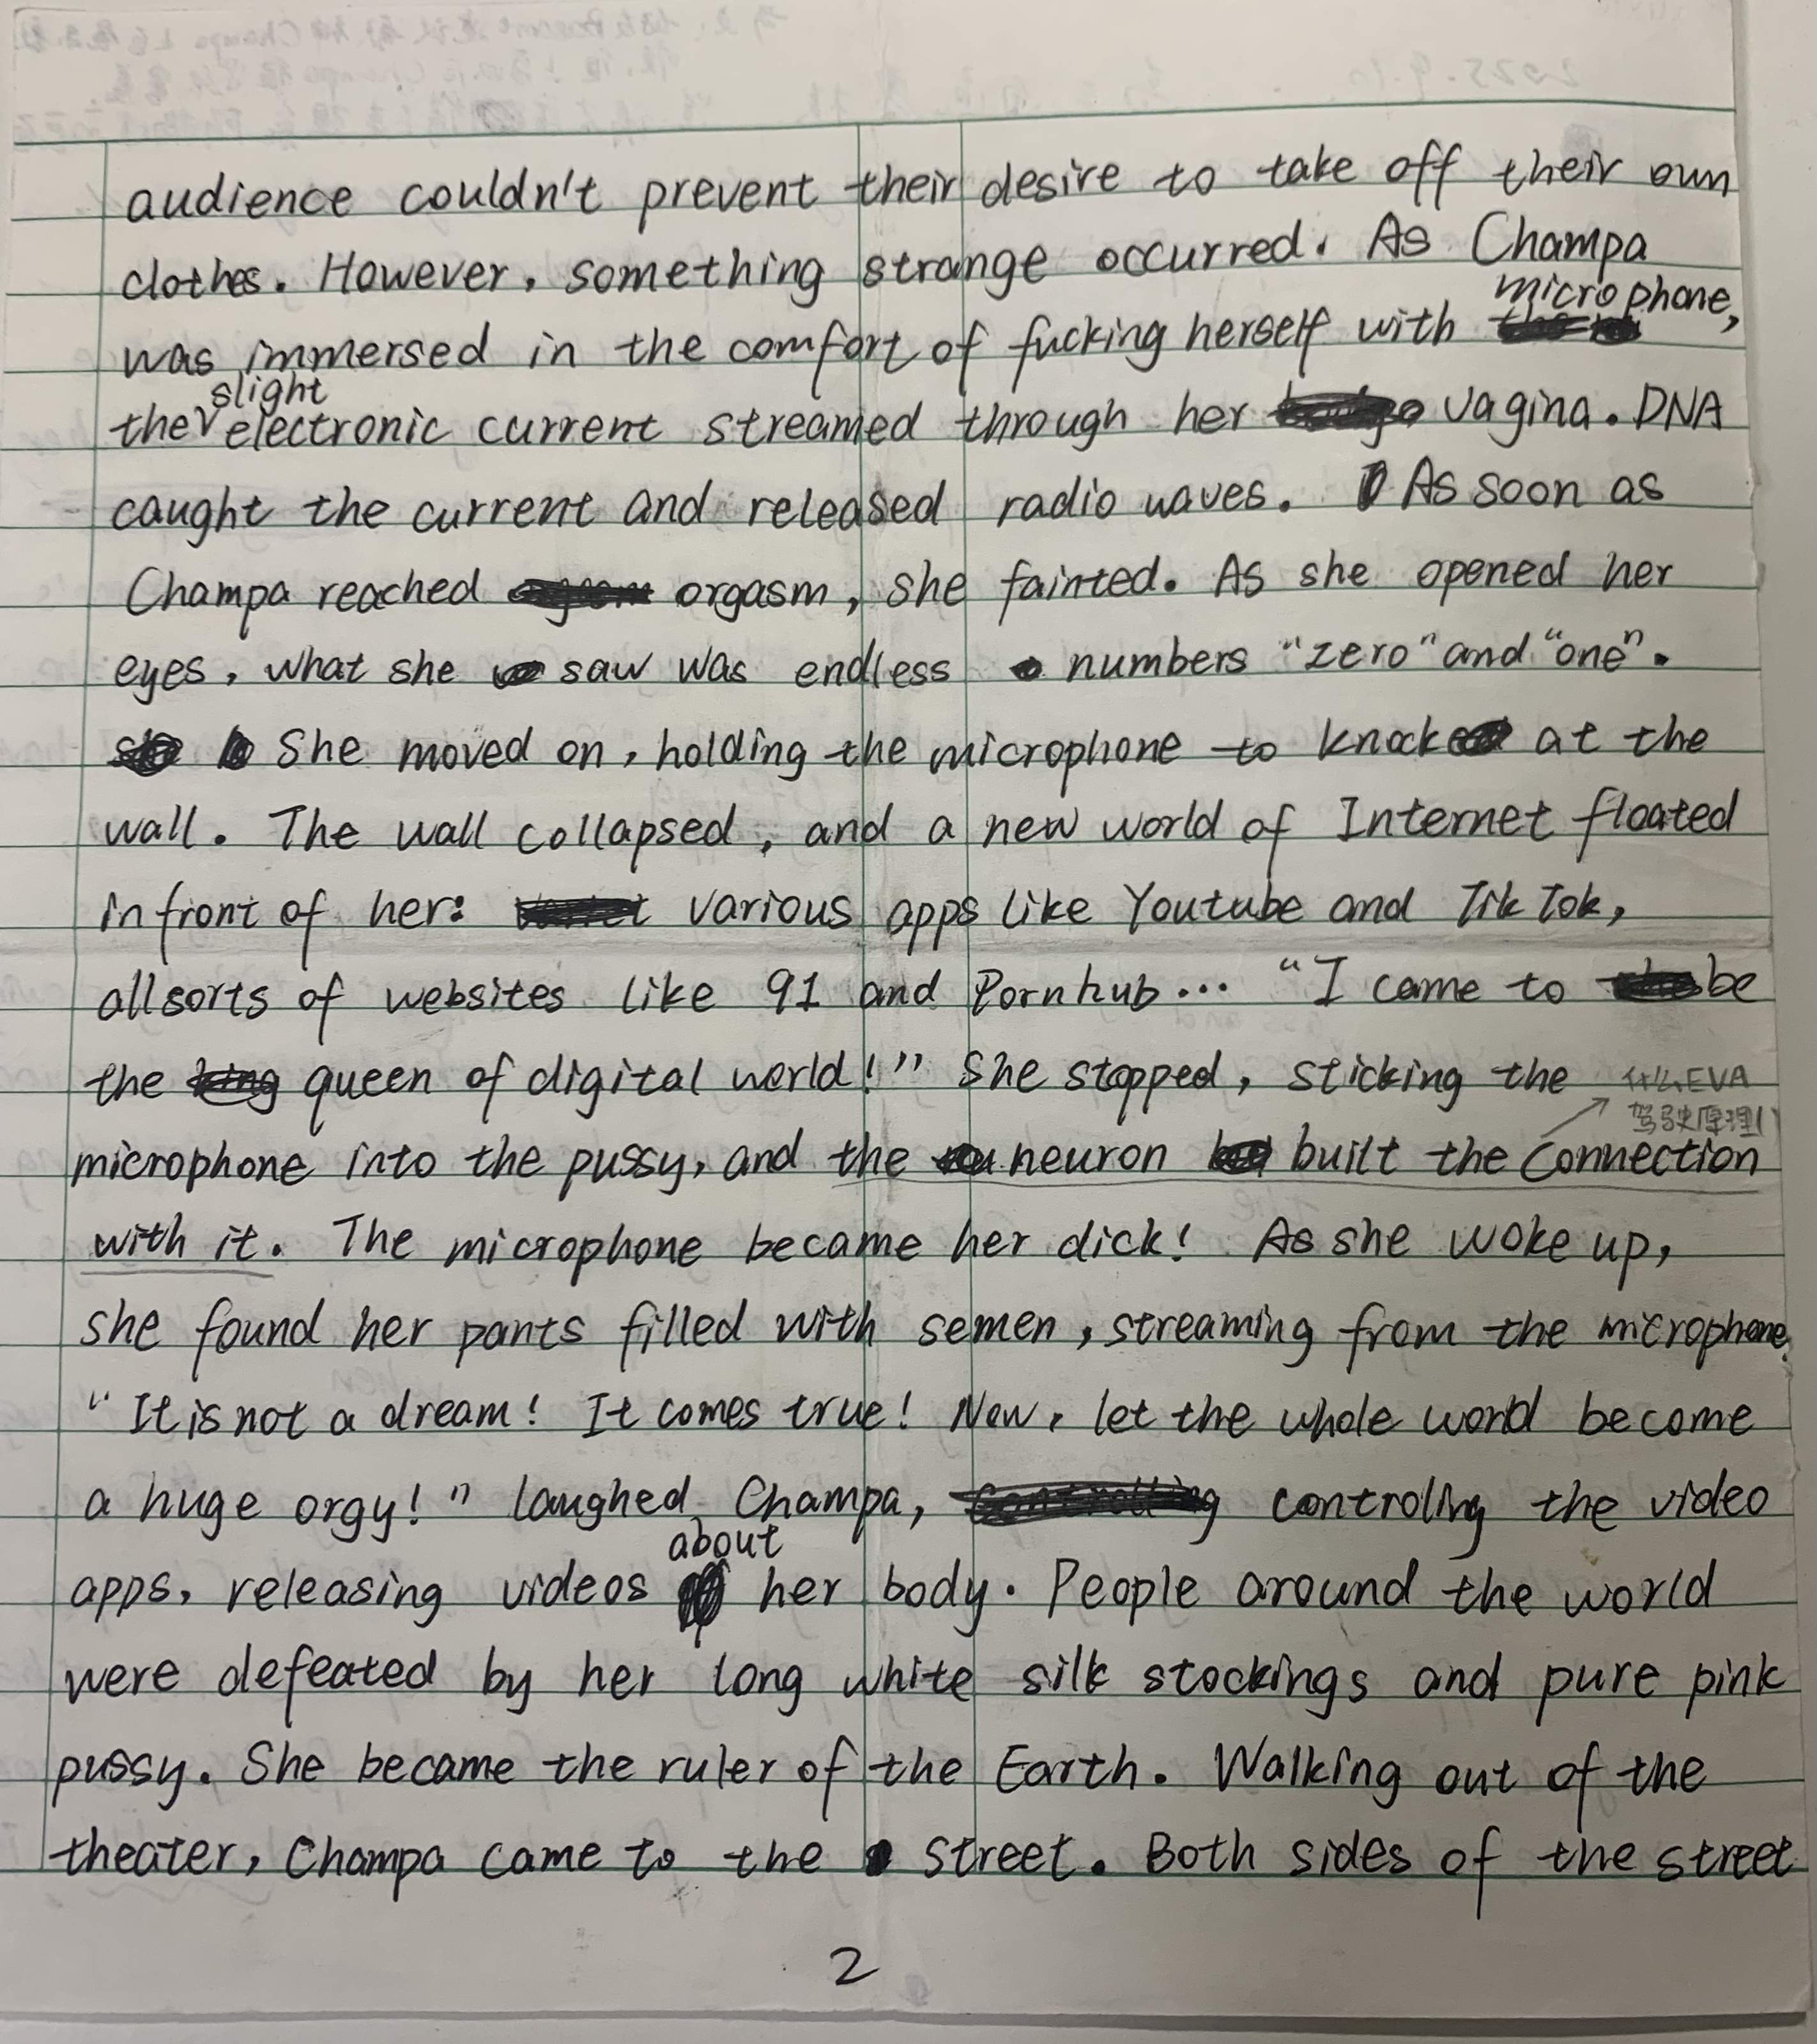 audience couldn't prevent their desire to take off their own
clothes. However, something strange occurred. As Champa
microphone,
was immersed in the comfort of fucking herself with
slight
the electronic current streamed through her vagina. DNA
caught the current and released radio waves. As soon as
Champa reached orgasm, she fainted. As she opened her
eyes, what she saw was endless numbers "zero" and "one".
She moved on, holding the microphone to knock at the
wall. The wall collapsed, and a new world of Internet floated
in front of her: various apps like Youtube and TikTok,
all sorts of websites like 91 and Pornhub... "I came to be
the queen of digital world!" She stopped, sticking the
什么EVA
驾驶原理！
microphone into the pussy, and the neuron built the connection
with it. The microphone became her dick! As she woke up,
she found her pants filled with semen, streaming from the microphone.
"It is not a dream! It comes true! Now, let the whole world become
a huge orgy!" laughed Champa, controling the video
about
apps, releasing videos her body. People around the world
were defeated by her long white silk stockings and pure pink
pussy. She became the ruler of the Earth. Walking out of the
theater, Champa came to the street. Both sides of the street
2